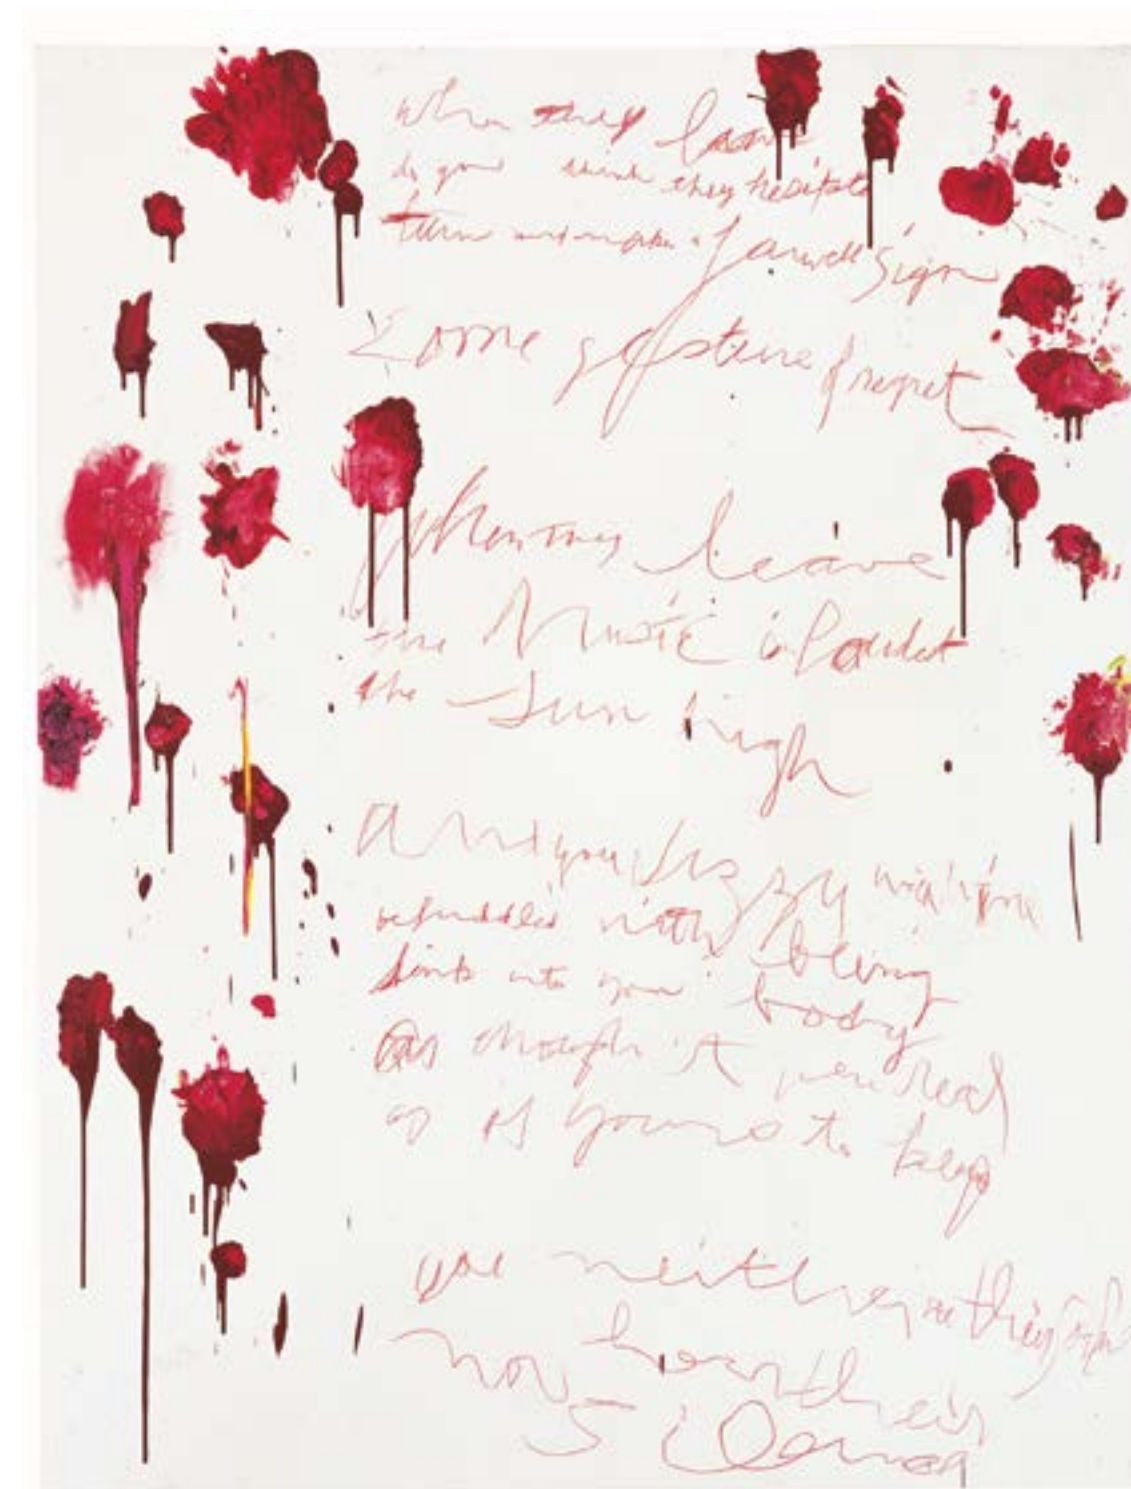 When they leave
do you think they hesitate
turn and make a farewell sign
Some gesture of regret
When they leave
the Music is loudest
the Sun high
And you dizzy with wine
befuddled with being
sink into your body
as though it were real
as if yours to keep
you neither
nor hear their
Silence